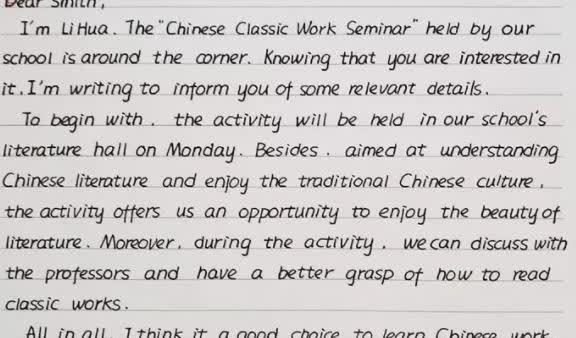 Dear Smith,
I'm Li Hua. The "Chinese Classic Work Seminar" held by our
school is around the corner. Knowing that you are interested in
it. I'm writing to inform you of some relevant details.
To begin with. the activity will be held in our school's
literature hall on Monday. Besides. aimed at understanding
Chinese literature and enjoy the traditional Chinese culture,
the activity offers us an opportunity to enjoy the beauty of
literature. Moreover, during the activity, we can discuss with
the professors and have a better grasp of how to read
classic works.
All in all, I think it a good choice to learn Chinese work